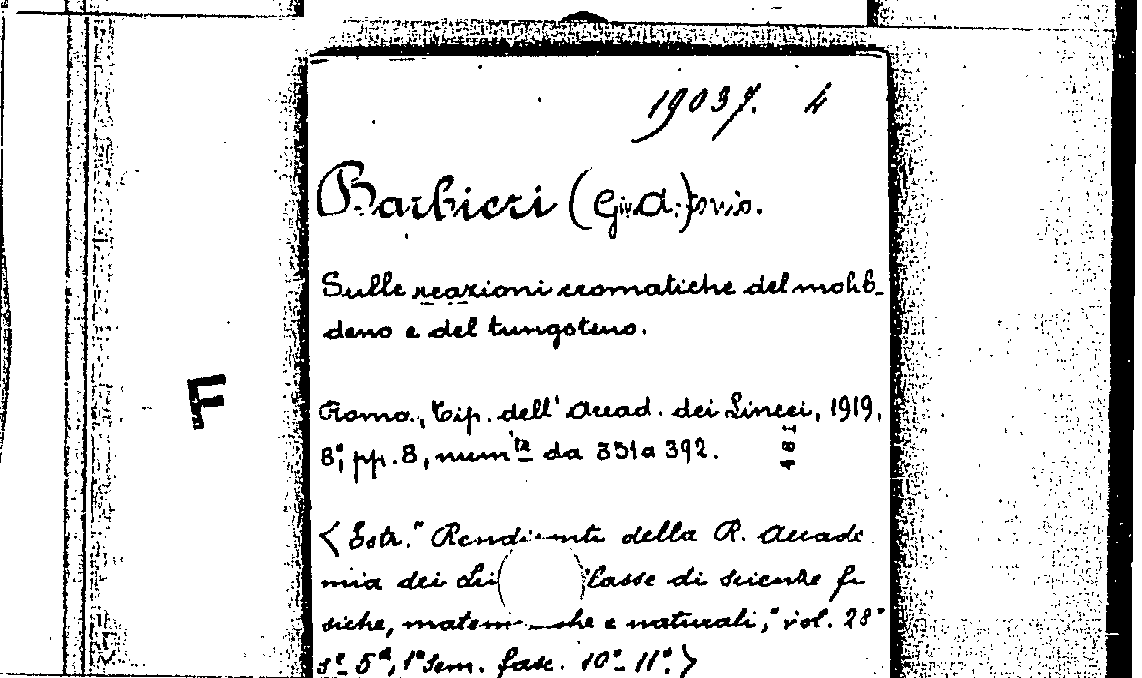 19037. 4
Barbieri (G. A.)
Sulle reazioni cromatiche del molib-
deno e del tungsteno.
Roma, Tip. dell' Accad. dei Lincei, 1919,
8°, pp. 8, num.ta da 351 a 392.
481
(Estr. " Rendiconti della R. Accade
mia dei Li classe di scienze fi
siche, matem che e naturali, " vol. 28°
s.e 5ª, 1° sem. fasc. 10°- 11°.)
F